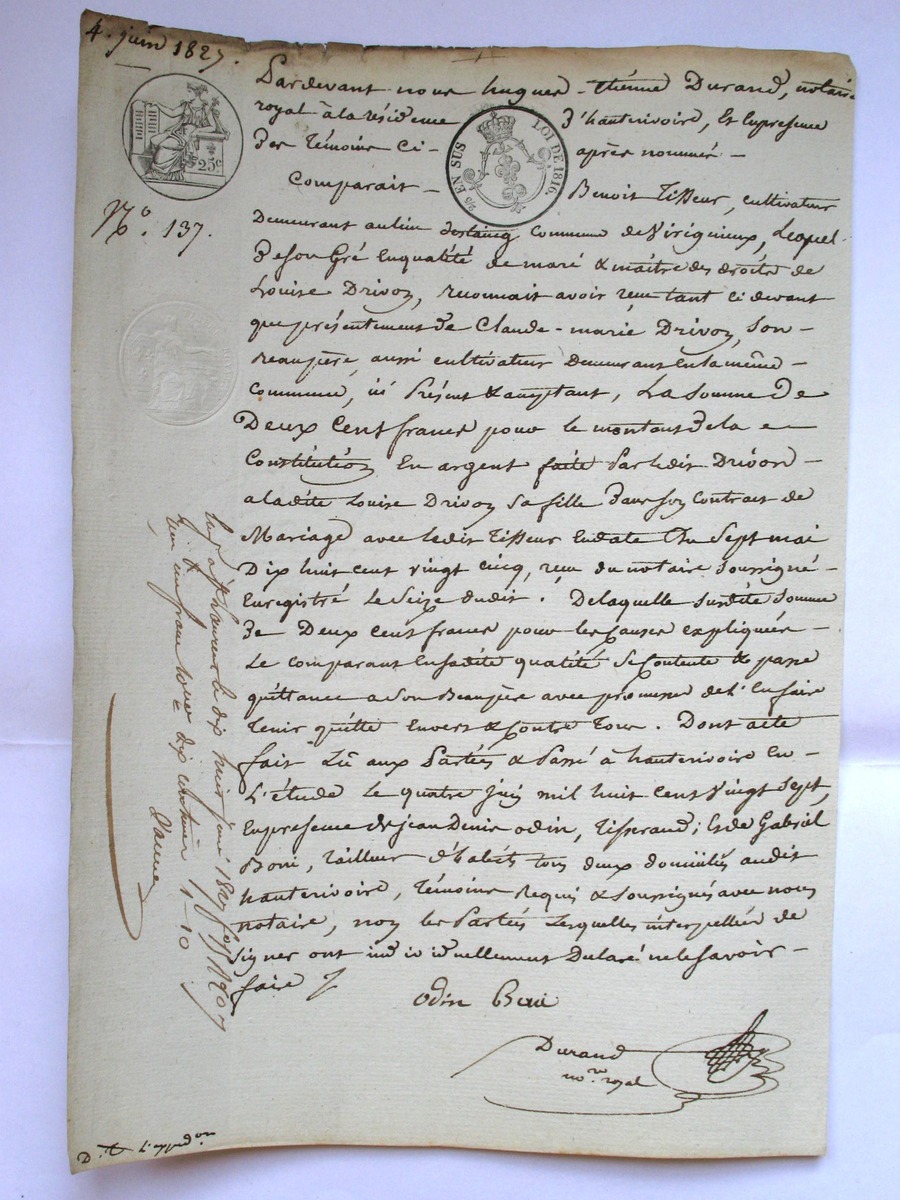 4. juin 1827.
Pardevant nous hugues-étienne Durand, notaire
royal à la résidence d'hauterivoire, Et En présence
des témoins ci-après nommés -
25c
25 EN SUS
LOI DE 1816.
Comparait - Benoit Tisseur, cultivateur
N.º 137.
Demeurant au lieu commune de Virigneux, Lequel
de son Gré En qualité de mari & maître des droits de
Louise Drivon, reconnait avoir reçu tant ci devant
que présentement de Claude-marie Drivon, son
beaupère, aussi cultivateur Demeurant En la même
Commune, ici Présent & acceptant, La Somme De
Deux Cent francs pour le montant de la
Constitution En argent faite Par ledit Drivon
a ladite Louise Drivon sa fille dans son Contrat de
Mariage avec ledit Tisseur En date du Sept mai
Dix huit cent vingt cinq, reçu du notaire soussigné
Enregistré le Seize dudit. Delaquelle susdite somme
de Deux cent francs pour les Causes expliquées
Le comparant En sadite qualité Se Contente & passe
quittance a son Beaupère avec promesse de l'En faire
tenir quitte Envers & Contre Tous. Dont acte
fait Lu aux Parties & Passé à hauterivoire En
L'étude Le quatre juin mil huit Cent Vingt Sept,
En présence de jean Denis odin, Tisserand; Et de Gabriel
Boni, Tailleur d'habits tous deux domiciliés audit
hauterivoire, Témoins Requis & Soussignés avec nous
notaire, non les Parties Lesquelles interpellées de
signer ont individuellement Déclaré ne le Savoir
faire
odin Boni
Durand
no.re royal
le dix huit juin 1827
reçu un franc dix centimes 1-10
D.t L'expedon